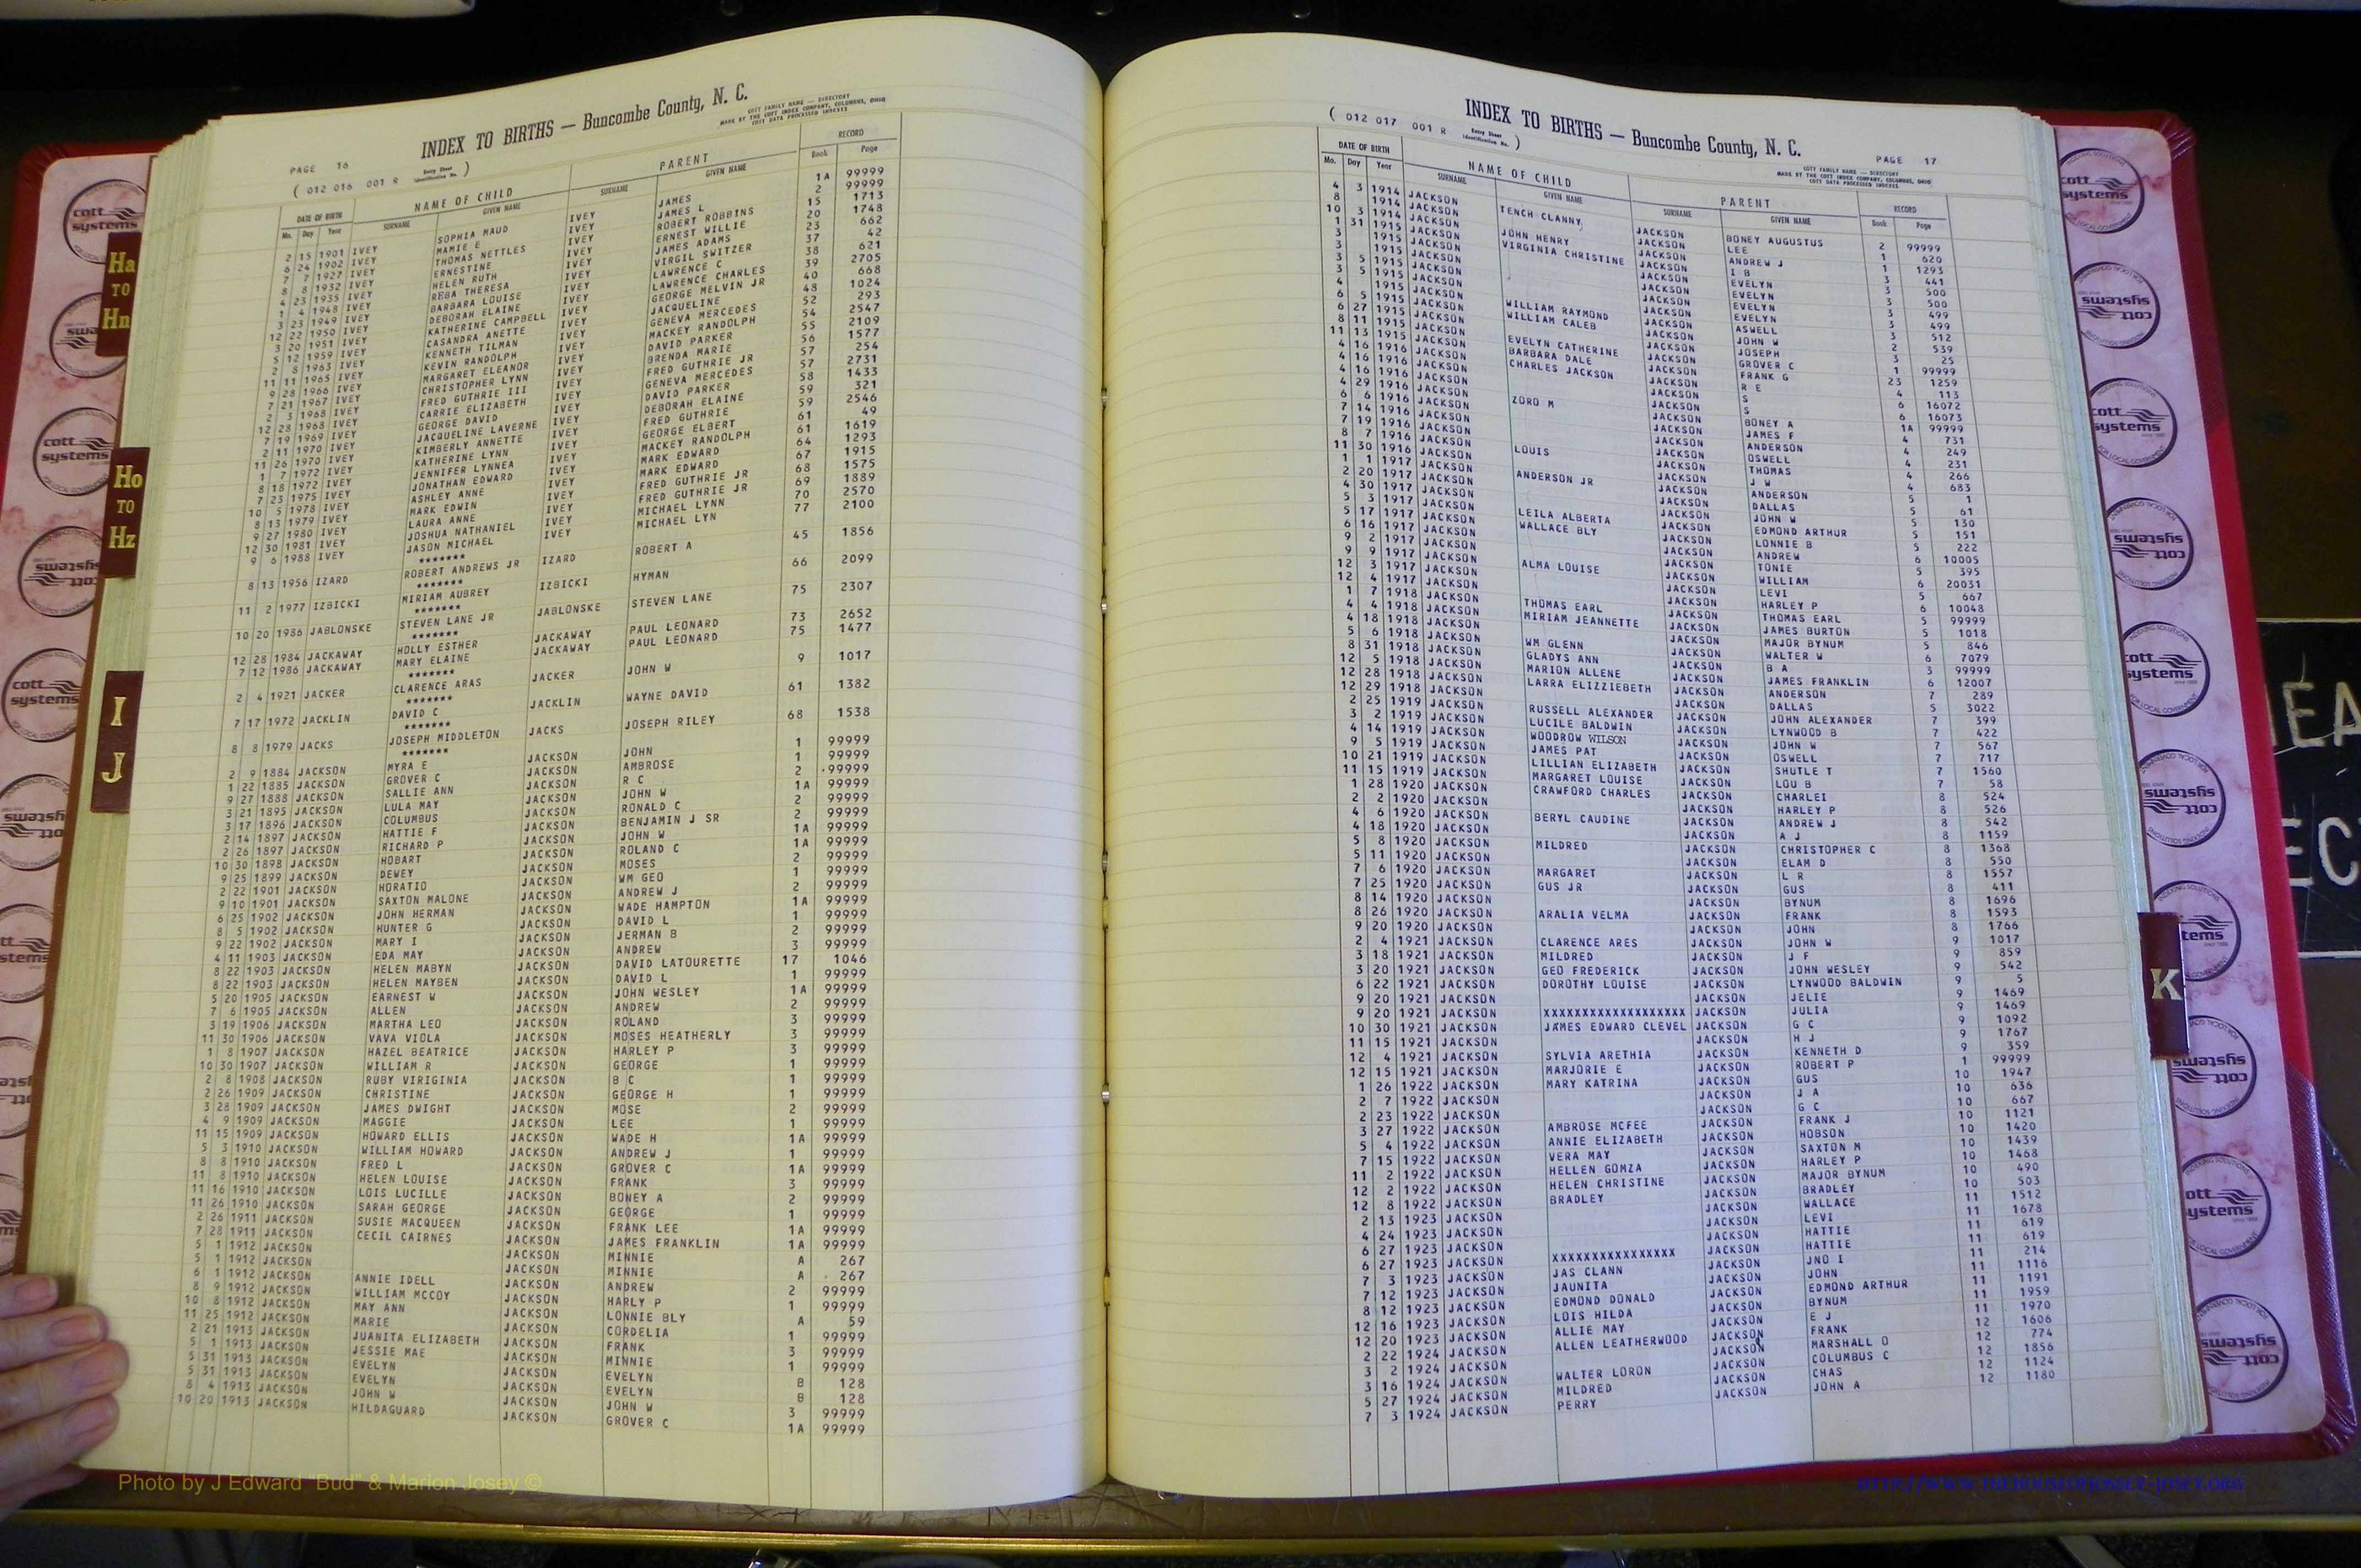 INDEX TO BIRTHS — Buncombe County, N. C.
COTT FAMILY NAME — DIRECTORY
MADE BY THE COTT INDEX COMPANY, COLUMBUS, OHIO
COTT DATA PROCESSED INDEXES
PAGE 16
( 012 016 001 R Entry Sheet Identification No. )
DATE OF BIRTH NAME OF CHILD PARENT RECORD
Mo. Day Year SURNAME GIVEN NAME SURNAME GIVEN NAME Book Page
2 15 1901 IVEY SOPHIA MAUD IVEY JAMES 1A 99999
6 24 1902 IVEY MAMIE E IVEY JAMES L 2 99999
7 7 1927 IVEY THOMAS NETTLES IVEY ROBERT ROBBINS 15 1713
8 8 1932 IVEY ERNESTINE IVEY ERNEST WILLIE 20 1748
4 23 1935 IVEY HELEN RUTH IVEY JAMES ADAMS 23 662
1 4 1948 IVEY REBA THERESA IVEY VIRGIL SWITZER 37 42
3 23 1949 IVEY BARBARA LOUISE IVEY LAWRENCE C 38 621
12 22 1950 IVEY DEBORAH ELAINE IVEY LAWRENCE CHARLES 39 2705
3 20 1951 IVEY KATHERINE CAMPBELL IVEY GEORGE MELVIN JR 40 668
5 12 1959 IVEY CASANDRA ANETTE IVEY JACQUELINE 48 1024
2 8 1963 IVEY KENNETH TILMAN IVEY GENEVA MERCEDES 52 293
11 11 1965 IVEY KEVIN RANDOLPH IVEY MACKEY RANDOLPH 54 2547
9 28 1966 IVEY MARGARET ELEANOR IVEY DAVID PARKER 55 2109
7 21 1967 IVEY CHRISTOPHER LYNN IVEY BRENDA MARIE 56 1577
2 3 1968 IVEY FRED GUTHRIE III IVEY FRED GUTHRIE JR 57 254
12 28 1968 IVEY CARRIE ELIZABETH IVEY GENEVA MERCEDES 57 2731
7 19 1969 IVEY GEORGE DAVID IVEY DAVID PARKER 58 1433
2 11 1970 IVEY JACQUELINE LAVERNE IVEY DEBORAH ELAINE 59 321
11 26 1970 IVEY KIMBERLY ANNETTE IVEY FRED GUTHRIE 59 2546
1 7 1972 IVEY KATHERINE LYNN IVEY GEORGE ELBERT 61 49
8 18 1972 IVEY JENNIFER LYNNEA IVEY MACKEY RANDOLPH 61 1619
7 23 1975 IVEY JONATHAN EDWARD IVEY MARK EDWARD 64 1293
10 5 1978 IVEY ASHLEY ANNE IVEY MARK EDWARD 67 1915
8 13 1979 IVEY MARK EDWIN IVEY FRED GUTHRIE JR 68 1575
9 27 1980 IVEY LAURA ANNE IVEY FRED GUTHRIE JR 69 1889
12 30 1981 IVEY JOSHUA NATHANIEL IVEY MICHAEL LYNN 70 2570
9 6 1988 IVEY JASON MICHAEL IVEY MICHAEL LYN 77 2100
*******
8 13 1956 IZARD ROBERT ANDREWS JR IZARD ROBERT A 45 1856
*******
11 2 1977 IZBICKI MIRIAM AUBREY IZBICKI HYMAN 66 2099
*******
10 20 1986 JABLONSKE STEVEN LANE JR JABLONSKE STEVEN LANE 75 2307
*******
12 28 1984 JACKAWAY HOLLY ESTHER JACKAWAY PAUL LEONARD 73 2652
7 12 1986 JACKAWAY MARY ELAINE JACKAWAY PAUL LEONARD 75 1477
*******
2 4 1921 JACKER CLARENCE ARAS JACKER JOHN W 9 1017
*******
7 17 1972 JACKLIN DAVID C JACKLIN WAYNE DAVID 61 1382
*******
8 8 1979 JACKS JOSEPH MIDDLETON JACKS JOSEPH RILEY 68 1538
*******
2 9 1884 JACKSON MYRA E JACKSON JOHN 1 99999
1 22 1885 JACKSON GROVER C JACKSON AMBROSE 1 99999
9 27 1888 JACKSON SALLIE ANN JACKSON R C 2 99999
3 21 1895 JACKSON LULA MAY JACKSON JOHN W 1A 99999
3 17 1896 JACKSON COLUMBUS JACKSON RONALD C 2 99999
2 14 1897 JACKSON HATTIE F JACKSON BENJAMIN J SR 2 99999
2 26 1897 JACKSON RICHARD P JACKSON JOHN W 1A 99999
10 30 1898 JACKSON HOBART JACKSON ROLAND C 1A 99999
9 25 1899 JACKSON DEWEY JACKSON MOSES 2 99999
2 22 1901 JACKSON HORATIO JACKSON WM GEO 1 99999
9 10 1901 JACKSON SAXTON MALONE JACKSON ANDREW J 2 99999
6 25 1902 JACKSON JOHN HERMAN JACKSON WADE HAMPTON 1A 99999
8 5 1902 JACKSON HUNTER G JACKSON DAVID L 1 99999
9 22 1902 JACKSON MARY I JACKSON JERMAN B 2 99999
4 11 1903 JACKSON EDA MAY JACKSON ANDREW 3 99999
8 22 1903 JACKSON HELEN MABYN JACKSON DAVID LATOURETTE 17 1046
8 22 1903 JACKSON HELEN MAYBEN JACKSON DAVID L 1 99999
5 20 1905 JACKSON EARNEST W JACKSON JOHN WESLEY 1A 99999
7 6 1905 JACKSON ALLEN JACKSON ANDREW 2 99999
3 19 1906 JACKSON MARTHA LEO JACKSON ROLAND 3 99999
11 30 1906 JACKSON VAVA VIOLA JACKSON MOSES HEATHERLY 3 99999
1 8 1907 JACKSON HAZEL BEATRICE JACKSON HARLEY P 3 99999
10 30 1907 JACKSON WILLIAM R JACKSON GEORGE 1 99999
2 8 1908 JACKSON RUBY VIRIGINIA JACKSON B C 1 99999
2 26 1909 JACKSON CHRISTINE JACKSON GEORGE H 1 99999
3 28 1909 JACKSON JAMES DWIGHT JACKSON MOSE 2 99999
4 9 1909 JACKSON MAGGIE JACKSON LEE 1 99999
11 15 1909 JACKSON HOWARD ELLIS JACKSON WADE H 1A 99999
5 3 1910 JACKSON WILLIAM HOWARD JACKSON ANDREW J 1 99999
8 8 1910 JACKSON FRED L JACKSON GROVER C 1A 99999
11 8 1910 JACKSON HELEN LOUISE JACKSON FRANK 3 99999
11 16 1910 JACKSON LOIS LUCILLE JACKSON BONEY A 2 99999
11 26 1910 JACKSON SARAH GEORGE JACKSON GEORGE 1 99999
2 26 1911 JACKSON SUSIE MACQUEEN JACKSON FRANK LEE 1A 99999
7 28 1911 JACKSON CECIL CAIRNES JACKSON JAMES FRANKLIN 1A 99999
5 1 1912 JACKSON JACKSON MINNIE A 267
5 1 1912 JACKSON JACKSON MINNIE A 267
6 1 1912 JACKSON ANNIE IDELL JACKSON ANDREW 2 99999
8 9 1912 JACKSON WILLIAM MCCOY JACKSON HARLY P 1 99999
10 8 1912 JACKSON MAY ANN JACKSON LONNIE BLY A 59
11 25 1912 JACKSON MARIE JACKSON CORDELIA 1 99999
2 21 1913 JACKSON JUANITA ELIZABETH JACKSON FRANK 3 99999
5 1 1913 JACKSON JESSIE MAE JACKSON MINNIE 1 99999
5 31 1913 JACKSON EVELYN JACKSON EVELYN B 128
5 31 1913 JACKSON EVELYN JACKSON EVELYN B 128
8 4 1913 JACKSON JOHN W JACKSON JOHN W 3 99999
10 20 1913 JACKSON HILDAGUARD JACKSON GROVER C 1A 99999
INDEX TO BIRTHS — Buncombe County, N. C.
COTT FAMILY NAME — DIRECTORY
MADE BY THE COTT INDEX COMPANY, COLUMBUS, OHIO
COTT DATA PROCESSED INDEXES
PAGE 17
( 012 017 001 R Entry Sheet Identification No. )
DATE OF BIRTH NAME OF CHILD PARENT RECORD
Mo. Day Year SURNAME GIVEN NAME SURNAME GIVEN NAME Book Page
4 3 1914 JACKSON TENCH CLANNY JACKSON BONEY AUGUSTUS 2 99999
8 1914 JACKSON JACKSON LEE 1 620
10 3 1914 JACKSON JOHN HENRY JACKSON ANDREW J 1 1293
1 31 1915 JACKSON VIRGINIA CHRISTINE JACKSON I B 3 441
3 1915 JACKSON JACKSON EVELYN 3 500
3 1915 JACKSON JACKSON EVELYN 3 500
3 5 1915 JACKSON JACKSON EVELYN 3 499
3 5 1915 JACKSON JACKSON EVELYN 3 499
4 1915 JACKSON WILLIAM RAYMOND JACKSON ASWELL 3 512
6 5 1915 JACKSON WILLIAM CALEB JACKSON JOHN W 2 539
6 27 1915 JACKSON JACKSON JOSEPH 3 25
8 11 1915 JACKSON EVELYN CATHERINE JACKSON GROVER C 1 99999
11 13 1915 JACKSON BARBARA DALE JACKSON FRANK G 23 1259
4 16 1916 JACKSON CHARLES JACKSON JACKSON R E 4 113
4 16 1916 JACKSON JACKSON S 6 16072
4 16 1916 JACKSON JACKSON S 6 16073
4 29 1916 JACKSON ZORO M JACKSON BONEY A 1A 99999
6 6 1916 JACKSON JACKSON JAMES F 4 731
7 14 1916 JACKSON JACKSON ANDERSON 4 249
7 19 1916 JACKSON JACKSON OSWELL 4 231
8 7 1916 JACKSON LOUIS JACKSON THOMAS 4 266
11 30 1916 JACKSON JACKSON J W 4 683
1 1 1917 JACKSON ANDERSON JR JACKSON ANDERSON 5 1
2 20 1917 JACKSON JACKSON DALLAS 5 61
4 30 1917 JACKSON JACKSON JOHN W 5 130
5 3 1917 JACKSON LEILA ALBERTA JACKSON EDMOND ARTHUR 5 151
5 17 1917 JACKSON WALLACE BLY JACKSON LONNIE B 5 222
6 16 1917 JACKSON JACKSON ANDREW 6 10005
9 2 1917 JACKSON JACKSON TONIE 5 395
9 9 1917 JACKSON ALMA LOUISE JACKSON WILLIAM 6 20031
12 3 1917 JACKSON JACKSON LEVI 5 667
12 4 1917 JACKSON JACKSON HARLEY P 6 10048
1 7 1918 JACKSON THOMAS EARL JACKSON THOMAS EARL 5 99999
4 4 1918 JACKSON MIRIAM JEANNETTE JACKSON JAMES BURTON 5 1018
4 18 1918 JACKSON JACKSON MAJOR BYNUM 5 846
5 6 1918 JACKSON WM GLENN JACKSON WALTER W 6 7079
8 31 1918 JACKSON GLADYS ANN JACKSON B A 3 99999
12 5 1918 JACKSON MARION ALLENE JACKSON JAMES FRANKLIN 6 12007
12 28 1918 JACKSON LARRA ELIZZIEBETH JACKSON ANDERSON 7 289
12 29 1918 JACKSON JACKSON DALLAS 5 3022
2 25 1919 JACKSON RUSSELL ALEXANDER JACKSON JOHN ALEXANDER 7 399
3 2 1919 JACKSON LUCILE BALDWIN JACKSON LYNWOOD B 7 422
4 14 1919 JACKSON WOODROW WILSON JACKSON JOHN W 7 567
9 5 1919 JACKSON JAMES PAT JACKSON OSWELL 7 717
10 21 1919 JACKSON LILLIAN ELIZABETH JACKSON SHUTLE T 7 1560
11 15 1919 JACKSON MARGARET LOUISE JACKSON LOU B 7 58
1 28 1920 JACKSON CRAWFORD CHARLES JACKSON CHARLEI 8 524
2 2 1920 JACKSON JACKSON HARLEY P 8 526
4 6 1920 JACKSON BERYL CAUDINE JACKSON ANDREW J 8 542
4 18 1920 JACKSON JACKSON A J 8 1159
5 8 1920 JACKSON MILDRED JACKSON CHRISTOPHER C 8 1368
5 11 1920 JACKSON JACKSON ELAM D 8 550
7 6 1920 JACKSON MARGARET JACKSON L R 8 1557
7 25 1920 JACKSON GUS JR JACKSON GUS 8 411
8 14 1920 JACKSON JACKSON BYNUM 8 1696
8 26 1920 JACKSON ARALIA VELMA JACKSON FRANK 8 1593
9 20 1920 JACKSON JACKSON JOHN 8 1766
2 4 1921 JACKSON CLARENCE ARES JACKSON JOHN W 9 1017
3 18 1921 JACKSON MILDRED JACKSON J F 9 859
3 20 1921 JACKSON GEO FREDERICK JACKSON JOHN WESLEY 9 542
6 22 1921 JACKSON DOROTHY LOUISE JACKSON LYNWOOD BALDWIN 9 5
9 20 1921 JACKSON JACKSON JELIE 9 1469
9 20 1921 JACKSON XXXXXXXXXXXXXXXXXXX JACKSON JULIA 9 1469
10 30 1921 JACKSON JAMES EDWARD CLEVEL JACKSON G C 9 1092
11 15 1921 JACKSON JACKSON H J 9 1767
12 4 1921 JACKSON SYLVIA ARETHIA JACKSON KENNETH D 9 359
12 15 1921 JACKSON MARJORIE E JACKSON ROBERT P 1 99999
1 26 1922 JACKSON MARY KATRINA JACKSON GUS 10 1947
2 7 1922 JACKSON JACKSON J A 10 636
2 23 1922 JACKSON JACKSON G C 10 667
3 27 1922 JACKSON AMBROSE MCFEE JACKSON FRANK J 10 1121
5 4 1922 JACKSON ANNIE ELIZABETH JACKSON HOBSON 10 1420
7 15 1922 JACKSON VERA MAY JACKSON SAXTON M 10 1439
11 2 1922 JACKSON HELLEN GOMZA JACKSON HARLEY P 10 1468
12 2 1922 JACKSON HELEN CHRISTINE JACKSON MAJOR BYNUM 10 490
12 8 1922 JACKSON BRADLEY JACKSON BRADLEY 10 503
2 13 1923 JACKSON JACKSON WALLACE 11 1512
4 24 1923 JACKSON JACKSON LEVI 11 1678
6 27 1923 JACKSON JACKSON HATTIE 11 619
6 27 1923 JACKSON XXXXXXXXXXXXXXXX JACKSON HATTIE 11 619
7 3 1923 JACKSON JAS CLANN JACKSON JNO I 11 214
7 12 1923 JACKSON JAUNITA JACKSON JOHN 11 1116
8 12 1923 JACKSON EDMOND DONALD JACKSON EDMOND ARTHUR 11 1191
12 16 1923 JACKSON LOIS HILDA JACKSON BYNUM 11 1959
12 20 1923 JACKSON ALLIE MAY JACKSON E J 11 1970
2 22 1924 JACKSON ALLEN LEATHERWOOD JACKSON FRANK 12 1606
3 2 1924 JACKSON JACKSON MARSHALL O 12 774
3 16 1924 JACKSON WALTER LORON JACKSON COLUMBUS C 12 1856
5 27 1924 JACKSON MILDRED JACKSON CHAS 12 1124
7 3 1924 JACKSON PERRY JACKSON JOHN A 12 1180
Ha TO Hn
Ho TO Hz
I
J
K
cott systems
Photo by J Edward "Bud" & Marion Josey ©
HTTP://WWW.THEHOUSEOFJOSSEY-JOSEY.ORG